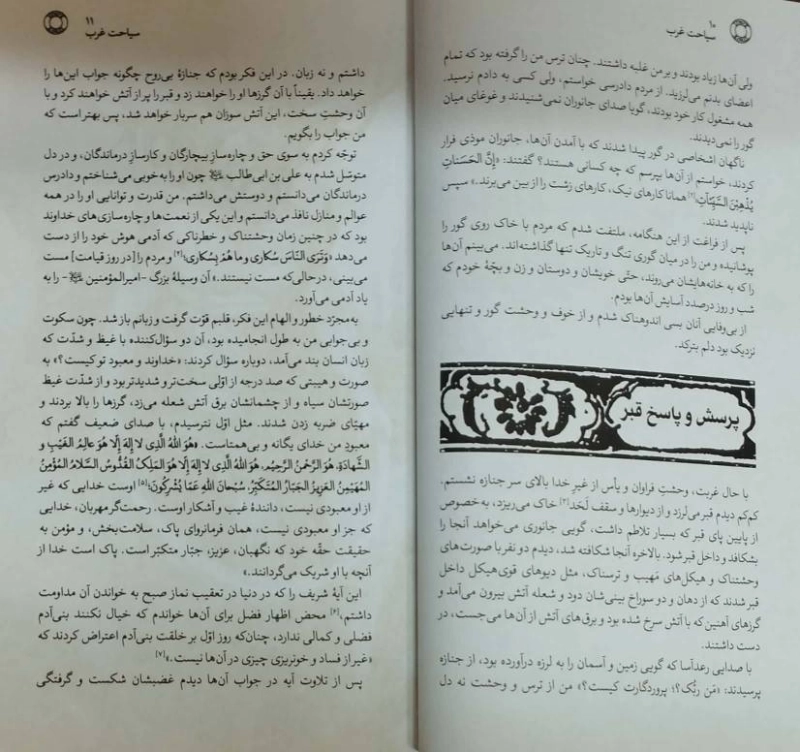 ۱۰
سیاحت غرب
ولی آن‌ها زیاد بودند و بر من غلبه داشتند. چنان ترس من را گرفته بود که تمام
اعضای بدنم می‌لرزید. از مردم دادرسی خواستم، ولی کسی به دادم نرسید.
همه مشغول کار خود بودند، گویا صدای جانوران نمی‌شنیدند و غوغای میان
گور را نمی‌دیدند.
ناگهان اشخاصی در گور پیدا شدند که با آمدن آن‌ها، جانوران موذی فرار
کردند، خواستم از آن‌ها بپرسم که چه کسانی هستند؟ گفتند: «إِنَّ الحَسَناتِ
یُذْهِبْنَ السَّیِّئاتِ؛[۲] همانا کارهای نیک، کارهای زشت را از بین می‌برند.» سپس
ناپدید شدند.
پس از فراغت از این هنگامه، ملتفت شدم که مردم با خاک روی گور را
پوشانیده و من را در میان گوری تنگ و تاریک تنها گذاشته‌اند. می‌بینم آن‌ها
را که به خانه‌هایشان می‌روند، حتّی خویشان و دوستان و زن و بچّهٔ خودم که
شب و روز درصدد آسایش آن‌ها بودم.
از بی‌وفایی آنان بسی اندوهناک شدم و از خوف و وحشت گور و تنهایی
نزدیک بود دلم بترکد.
پرسش و پاسخ قبر
با حال غربت، وحشتِ فراوان و یأس از غیرِ خدا بالای سر جنازه نشستم.
کم‌کم دیدم قبر می‌لرزد و از دیوارها و سقف لَحَد[۳] خاک می‌ریزد، به خصوص
از پایین پای قبر که بسیار تلاطم داشت، گویی جانوری می‌خواهد آنجا را
بشکافد و داخل قبر شود. بالاخره آنجا شکافته شد، دیدم دو نفر با صورت‌های
وحشتناک و هیکل‌های مَهیب و ترسناک، مثل دیوهای قوی‌هیکل داخل
قبر شدند که از دهان و دو سوراخ بینی‌شان دود و شعله آتش بیرون می‌آمد و
گرزهای آهنین‌که با آتش سرخ شده بود و برق‌های آتش از آن‌ها می‌جست، در
دست داشتند.
با صدایی رعدآسا که گویی زمین و آسمان را به لرزه درآورده بود، از جنازه
پرسیدند: «مَن ربُّک؟؛ پروردگارت کیست؟» من از ترس و وحشت نه دل
۱۱
سیاحت غرب
داشتم و نه زبان. در این فکر بودم که جنازهٔ بی‌روح چگونه جواب این‌ها را
خواهد داد. یقیناً با آن گرزها او را خواهند زد و قبر را پر از آتش خواهند کرد و با
آن وحشتِ سخت، این آتش سوزان هم سربار خواهد شد، پس بهتر است که
من جواب را بگویم.
توجّه کردم به سوی حق و چاره‌سازِ بیچارگان و کارسازِ درماندگان، و در دل
متوسّل شدم به علی بن ابی‌طالب چون او را به خوبی می‌شناختم و دادرس
درماندگان می‌دانستم و دوستش می‌داشتم، من قدرت و توانایی او را در همه
عوالم و منازل نافذ می‌دانستم و این یکی از نعمت‌ها و چاره‌سازی‌های خداوند
بود که در چنین زمان وحشتناک و خطرناکی که آدمی هوش خود را از دست
می‌دهد «وَتَرَی النّاسَ سُکاری وما هُمْ بِسُکاری؛[۴] و مردم را [در روز قیامت] مست
می‌بینی، درحالی‌که مست نیستند.» آن وسیلهٔ بزرگ -امیرالمؤمنین- را به
یاد آدمی می‌آورد.
به‌مجرّد خطور و الهام این فکر، قلبم قوّت گرفت و زبانم باز شد. چون سکوت
و بی‌جوابی من به طول انجامیده بود، آن دو سؤال‌کننده با غیظ و شدّت که
زبان انسان بند می‌آمد، دوباره سؤال کردند: «خداوند و معبود تو کیست؟» به
صورت و هیبتی که صد درجه از اوّلی سخت‌تر و شدیدتر بود و از شدّت غیظ
صورتشان سیاه و از چشمانشان برق آتش شعله می‌زد، گرزها را بالا بردند و
مهیّای ضربه زدن شدند. مثل اوّل نترسیدم، با صدای ضعیف گفتم که
معبودِ من خدای یگانه و بی‌همتاست. «هُوَ اللهُ الَّذِی لا إِلهَ إِلّا هُوَ عالِمُ الغَیْبِ و
الشَّهادَةِ، هُوَ الرَّحْمنُ الرَّحِیْمُ، هُوَ اللهُ الَّذِی لا إِلهَ إِلّا هُوَ المَلِکُ القُدُّوسُ السَّلامُ المُؤْمِنُ
المُهَیْمِنُ العَزِیزُ الجَبّارُ المُتَکَبِّرُ، سُبْحانَ اللهِ عَمّا یُشْرِکُونَ؛[۵] اوست خدایی که غیر
از او معبودی نیست، دانندهٔ غیب و آشکار اوست. رحمت‌گر مهربان، خدایی
که جز او معبودی نیست، همان فرمانروای پاک، سلامت‌بخش، و مؤمن به
حقیقت حقّه خود که نگهبان، عزیز، جبّار متکبّر است. پاک است خدا از
آنچه با او شریک می‌گردانند.»
این آیهٔ شریف را که در دنیا در تعقیب نماز صبح به خواندن آن مداومت
داشتم،[۶] محض اظهار فضل برای آن‌ها خواندم که خیال نکنند بنی‌آدم
فضلی و کمالی ندارد، چنان‌که روز اوّل بر خلقت بنی‌آدم اعتراض کردند که
«غیر از فساد و خونریزی چیزی در آن‌ها نیست.»[۷]
پس از تلاوت آیه در جواب آن‌ها دیدم غضبشان شکست و گرفتگی